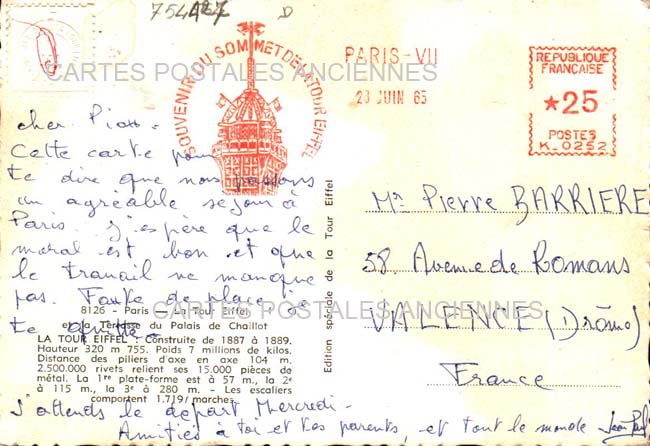 754427
D
CARTES POSTALES ANCIENNES
SOUVENIR DU SOMMET DE LA TOUR EIFFEL
PARIS-VII
23 JUIN 65
REPUBLIQUE
FRANÇAISE
★25
POSTES
K_0252
cher
Cette carte pour
te dire que nous passons
un agréable séjour à
Paris. J'espère que le
moral est bon et que
le travail ne manque
pas. Faute de place je
te quitte.
Edition spéciale de la Tour Eiffel
Mr Pierre BARRIERE
58 Avenue de Romans
VALENCE (Drôme)
France
CARTES POSTALES ANCIENNES
8126 - Paris - La Tour Eiffel
et la Terrasse du Palais de Chaillot
LA TOUR EIFFEL : Construite de 1887 à 1889.
Hauteur 320 m 755. Poids 7 millions de kilos.
Distance des piliers d'axe en axe 104 m.
2.500.000 rivets relient ses 15.000 pièces de
métal. La 1re plate-forme est à 57 m., la 2e
à 115 m., la 3e à 280 m. - Les escaliers
comportent 1.719 marches.
J'attends le départ Mercredi -
Amitiés à toi et tes parents, et tout le monde Jean Paul